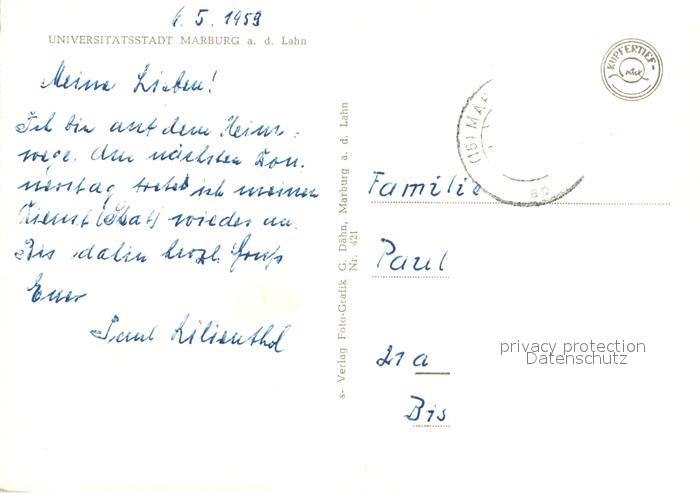 6.5.1959
UNIVERSITÄTSSTADT MARBURG a. d. Lahn
Meine Lieben!
Ich bin auf dem Heim-
wege. Am nächsten Don-
nerstag trete ich meinen
Dienst (Skat) wieder an.
Bis dahin herzl. Gruß
Euer
Paul Lilienthal
s- Verlag Foto-Grafik G. Dähn, Marburg a. d. Lahn
Nr. 421
KUPFERTIEF-
(16) MA
Familie
Paul
21a
Bis
privacy protection
Datenschutz